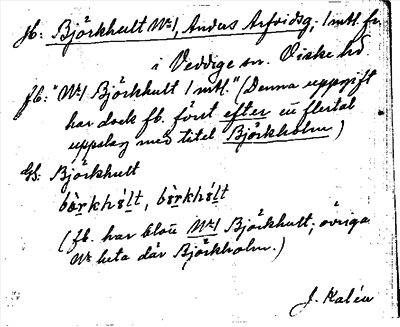 Jb: Björkhult № 1, Anders Arfvidsg; 1 mtl. fr.
i Veddige sn. Viske hd
fb: "№ 1 Björkhult 1 mtl." (Denna uppgift
har dock fb. först efter en flertal
uppslag med titel Björkholm)
Gs: Björkhult
bö̀rkhúlt, bö̀rkhúlt
(fb. har blott № 1 Björkhult; övriga
№ heta där Björkholm.)
J. Kalén